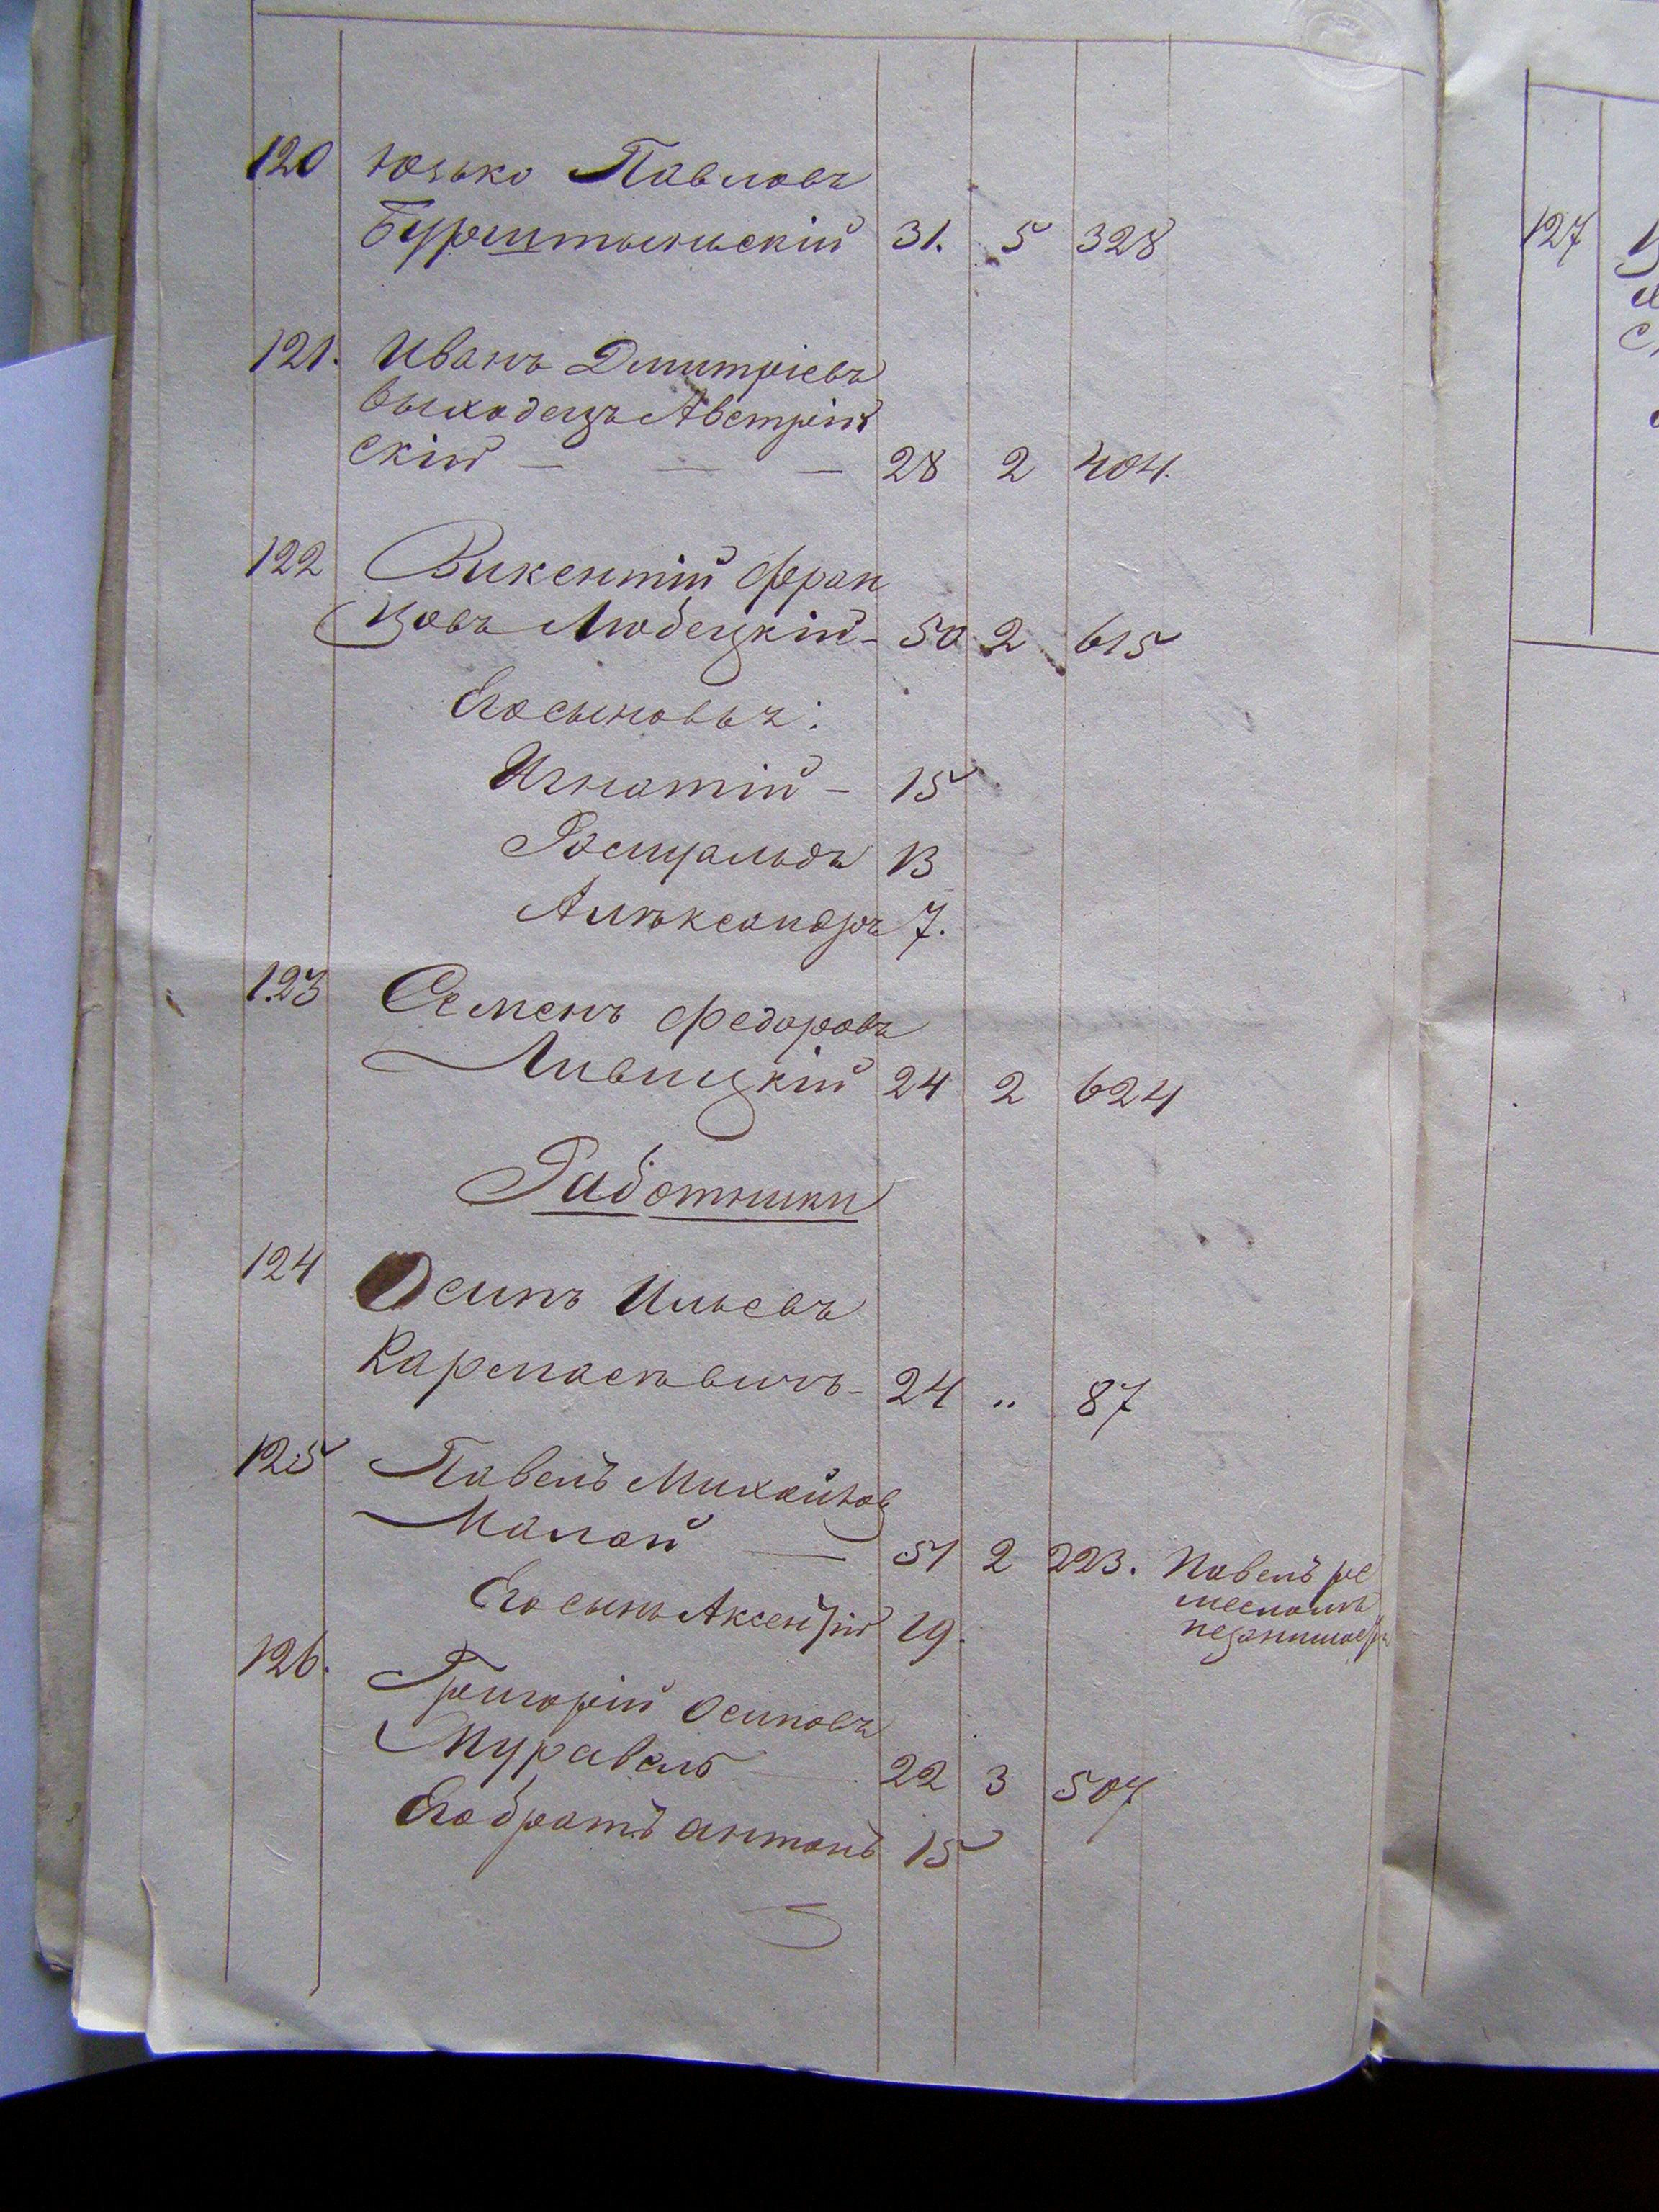 120 Юзько Павловъ
Бурштыньскій 31. 5 328
121. Иванъ Дмитріевъ
выходецъ Австрій
скій — — — 28 2 404.
122 Викентій Фран
цовъ Любецкій - 50 2 615
Его сыновья:
Игнатій - 15
Ромуальдъ 13
Алѣксандръ 7.
123 Семенъ Федоровъ
Ливицкій 24 2 624
Работники
124 Осипъ Ильевъ
24 .. 87
125 Павелъ Михайлов
Малой — 51 2 223. Павелъ ре
месломъ
Его сынъ Аксентій 19. незанимается
126. Григорій Осиповъ
Муравель — 22 3 507
Его братъ Антонъ 15
127